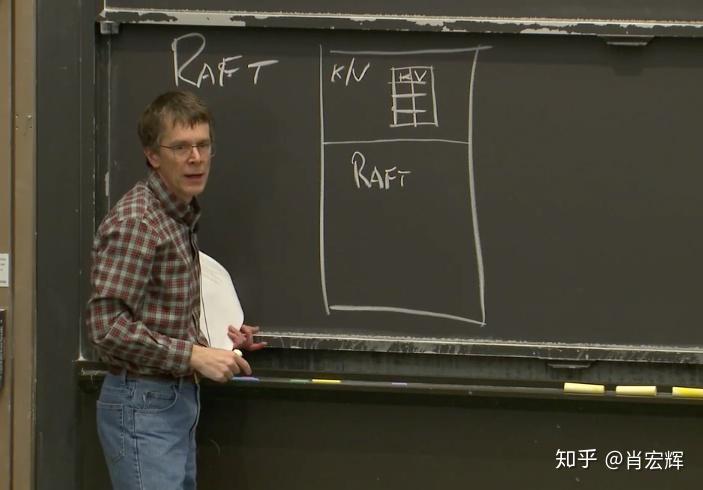 RAFT
K/V
K V
RAFT
知乎 @肖宏辉